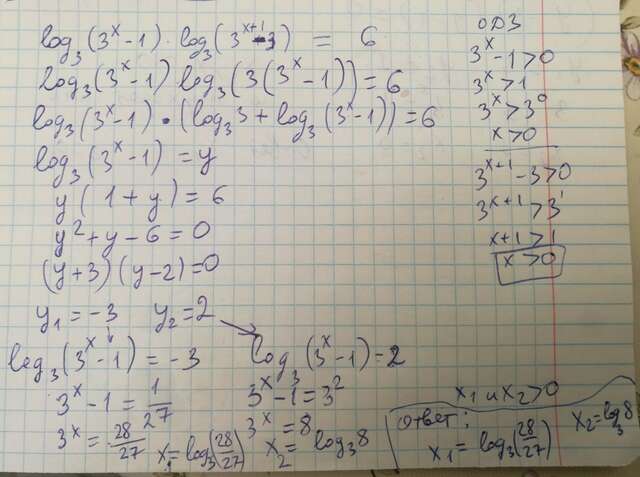 log₃(3ˣ-1) · log₃(3ˣ⁺¹-3) = 6
log₃(3ˣ-1) log₃(3(3ˣ-1)) = 6
log₃(3ˣ-1) · (log₃3 + log₃(3ˣ-1)) = 6
log₃(3ˣ-1) = y
y(1+y) = 6
y²+y-6=0
(y+3)(y-2)=0
y₁ = -3 y₂ = 2
log₃(3ˣ-1) = -3
3ˣ-1 = 1/27
3ˣ = 28/27 x₁ = log₃(28/27)
log₃(3ˣ-1) = 2
3ˣ-1 = 3²
3ˣ = 8
x₂ = log₃8
ОДЗ
3ˣ-1>0
3ˣ>1
3ˣ>3⁰
x>0
3ˣ⁺¹-3>0
3ˣ⁺¹>3¹
x+1>1
x>0
x₁ и x₂>0
Ответ:
x₁ = log₃(28/27) x₂ = log₃8